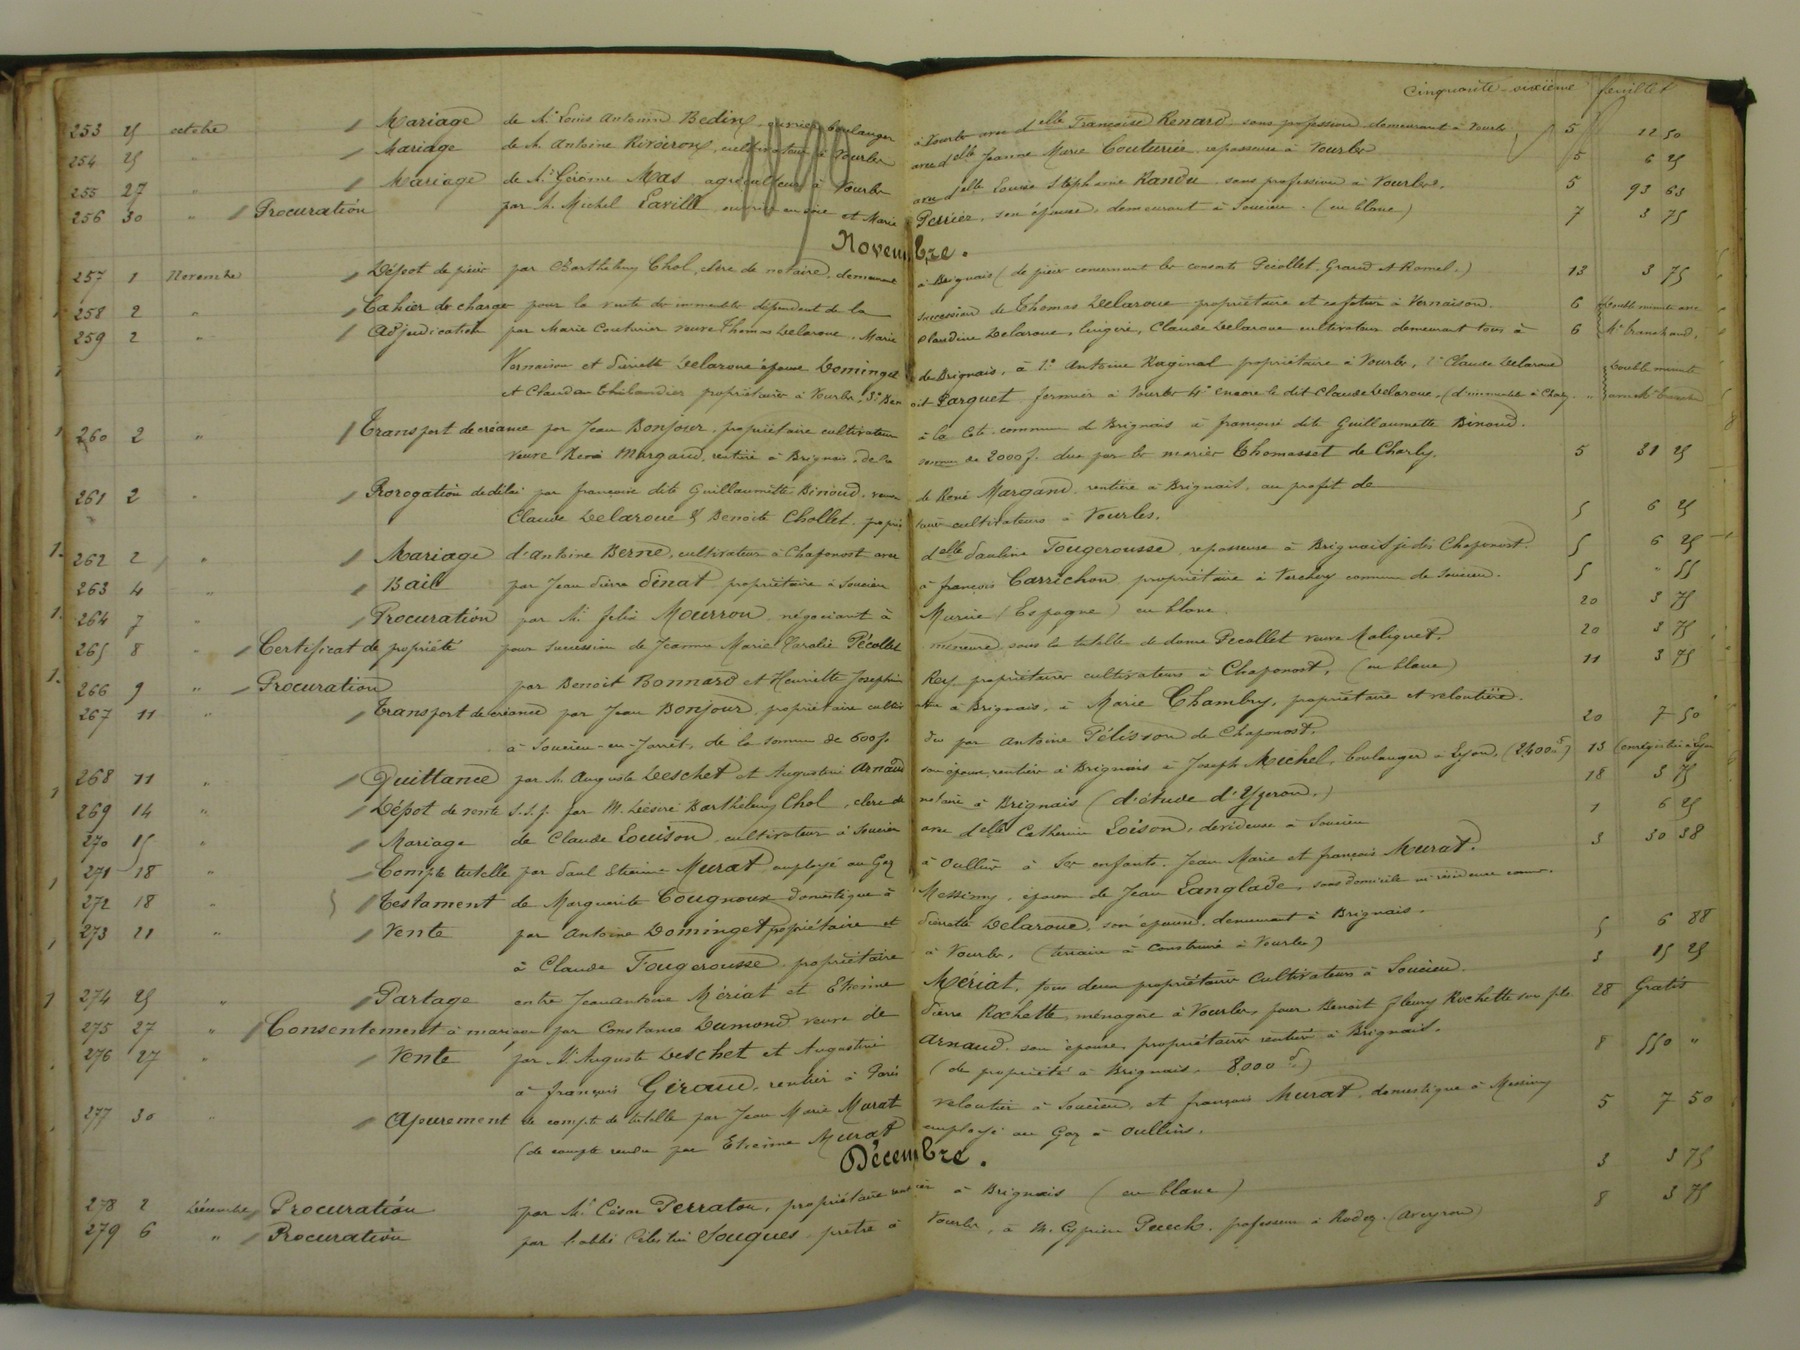 Cinquante-sixième feuillet
253 25 octobre Mariage de Mr Louis Antoine Bedin, ouvrier boulanger à Vourles avec delle Françoise Renard sans profession demeurant à Vourles 5 12 50
254 25 " Mariage de M. Antoine Rivoiron, cultivateur à Vourles avec delle Jeanne Marie Couturier repasseuse à Vourles 5 6 25
255 27 " Mariage de Mr Gérôme Mas agriculteur à Vourles avec delle Louise Stéphanie Randu sans profession à Vourles. 5 93 63
256 30 " Procuration par M. Michel Lavill ouvrier en soie et Marie Perrier, son épouse, demeurant à Soucieu. (en blanc) 7 3 75
Novembre.
257 1 Novembre Dépot de pièce par Barthélemy Chol, clerc de notaire, demeurant à Brignais (de pièce concernant les consorts Pécollet, Grand et Romel.) 13 3 75
258 2 " Cahier de charge pour la vente de immeuble dépendant de la succession de Thomas Delaroue propriétaire et cafetier à Vernaison. 6 double minute avec
259 2 " Adjudication par Marie Couturier veuve Thomas Delaroue, Marie Claudine Delaroue, lingère, Claude Delaroue cultivateur demeurant tous à 6
Vernaison et Pierrette Delaroue épouse Dominget de Brignais, à 1° Antoine Raginal propriétaire à Vourles, 2° Claude Delaroue double minute
et Claude Thibaudier propriétaire à Vourles, 3° Benoit Parquet fermier à Vourles 4° encore le dit Claude Delaroue, (d'immeuble à Charly. "
260 2 " Transport de créance par Jean Bonjour, propriétaire cultivateur à la Côte commune de Brignais à françoise dite Guillaumette Binoud.
veuve René Margand, rentière à Brignais, de la somme de 2000 f. due par les mariés Thomasset de Charly. 5 31 25
261 2 " Prorogation de délai par françoise dite Guillaumette Binoud, veuve de René Margand rentière à Brignais, au profit de
Claude Delaroue & Benoite Chollet, propriétaires cultivateurs à Vourles. 5 6 25
262 2 " Mariage d'Antoine Berne, cultivateur à Chaponost avec delle Pauline Fougerousse, repasseuse à Brignais jadis Chaponost. 5 6 25
263 4 " Bail par Jean Pierre Pinat propriétaire à Soucieu à françois Carrichon, propriétaire à Verchery commune de Soucieu. 5 " 55
264 7 " Procuration par Mr felix Mourrou négociant à Murcie (Espagne) en blanc. 20 3 75
265 8 " Certificat de propriété pour succession de Jeanne Marie Coralie Pécollet mineure sous la tutelle de dame Pecollet veuve Maliquet. 20 3 75
266 9 " Procuration par Benoit Bonnard et Henriette Josephine Rey, propriétaires cultivateurs à Chaponost, (en blanc) 11 3 75
267 11 " Transport de créance par Jean Bonjour, propriétaire cultivateur à Brignais, à Marie Chambry, propriétaire et veloutière.
à Soucieu-en-Jarrêt, de la somme de 600 f. due par Antoine Pélisson de Chaponost. 20 7 50
268 11 " Quittance par M. Auguste Deschet et Augustine Arnaud son épouse, rentiers à Brignais à Joseph Michel, boulanger à Lyon, (2,400 f) 13 (enregistrée à Lyon
269 14 " Dépot de vente s.s.p. par M. Désiré Barthélemy Chol, clerc de notaire à Brignais (d'étude d'Yzeron.) 18 3 75
270 15 " Mariage de Claude Louison cultivateur à Soucieu avec delle Catherine Loison, dévideuse à Soucieu 1 6 25
271 18 " Compte tutelle par Paul Etienne Murat employé au Gaz à Oullins à ses enfants. Jean Marie et françois Murat. 3 30 38
272 18 " Testament de Marguerite Cougnoux domestique à Messimy, épouse de Jean Langlade, sans domicile ni résidence connus.
273 21 " Vente par Antoine Dominget propriétaire et Pierrette Delaroue, son épouse, demeurant à Brignais.
à Claude Fougerousse, propriétaire à Vourles, (terrain à construire à Vourles) 5 6 88
274 25 " Partage entre Jean Antoine Mériat et Etienne Mériat, tous deux propriétaires cultivateurs à Soucieu. 3 15 25
275 27 " Consentement à mariage par Constance Dumond veuve de Pierre Rochette, ménagère à Vourles, pour Benoit fleury Rochette son fils 28 Gratis
276 27 " Vente par Mr Auguste Deschet et Augustine Arnaud son épouse, propriétaires rentiers à Brignais.
à françois Giraud, rentier à Paris (de propriété à Brignais. 8,000 f) 8 550 "
277 30 " Apurement de compte de tutelle par Jean Marie Murat veloutier à Soucieu, et françois Murat, domestique à Messimy
(de compte rendu par Etienne Murat employé au Gaz à Oullins. 5 7 50
Décembre.
278 2 Décembre Procuration par Mr César Perraton, propriétaire rentier à Brignais (en blanc) 3 3 75
279 6 " Procuration par l'abbé Célestin Souques prêtre à Vourles, à M. Cyprien Peuch, professeur à Rodez (Aveyron) 8 3 75